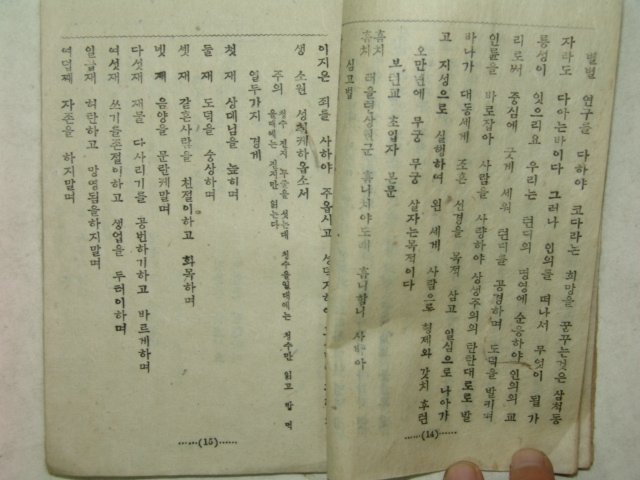 별별 연구를 다하야 코다라는 희망을 꿈꾸는것은 삼척동
자라도 다아는바이다 그러나 인의를 떠나서 무엇이 될가
릉성이 잇으리요 우리는 텬디의 명영에 순응하야 인의의 교
리로써 중심에 굿게 세워 텬디를 공경하며 도덕을 발키며
인륜을 바로잡아 사람을 사랑하야 상생주의의 탄탄대로로 발
바나가 대동세계 조흔 선경을 목적 삼고 일심으로 나아가
고 지성으로 실행하여 왼 세계 사람으로 형제와 갓치 후련
오만년에 무궁 무궁 살자는목적이다
보텬교 초입자 본문
훔치
훔치 태을텬상원군 훔니치야도래 훔니함니 사바아
심고법
......(14)......
이지은 죄를 사하야 주옵시고
생 소원 성취케하옵소서
주의
일두가지 경계
첫재 상데님을 높히며
둘재 도덕을 숭상하며
셋재 갈흔사람을 친절이하고 화목하며
넷재 음양을 문란케말며
다섯재 재물 다사리기를 공번하기하고 바르게하며
여섯재 쓰기를존절이하고 생업을 두터이하며
일곱재 허란하고 망영됨을하지말며
여덟재 자존을 하지말며
......(15)......